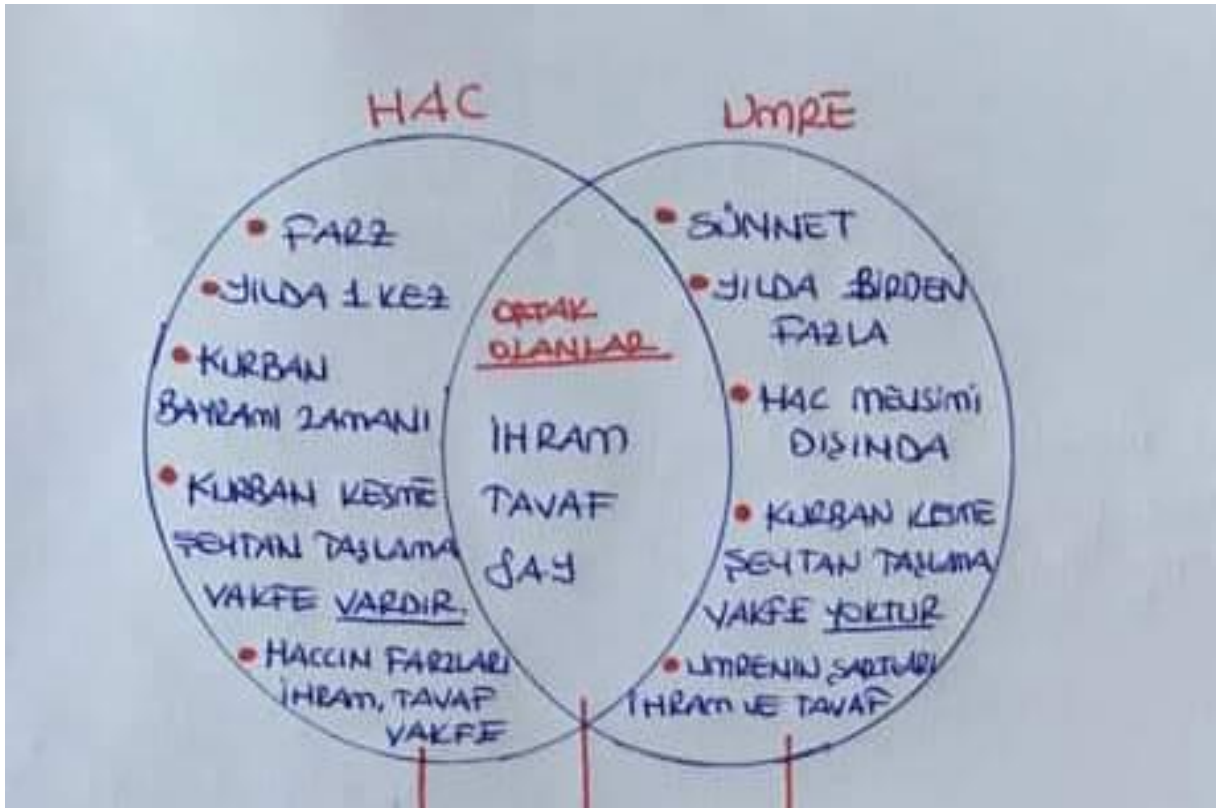 HAC
UMRE
• FARZ
• YILDA 1 KEZ
• KURBAN
BAYRAMI ZAMANI
• KURBAN KESME
ŞEYTAN TAŞLAMA
VAKFE VARDIR.
• HACCIN FARZLARI
İHRAM, TAVAF
VAKFE
ORTAK
OLANLAR
İHRAM
TAVAF
SAY
• SÜNNET
• YILDA BİRDEN
FAZLA
• HAC MEVSİMİ
DIŞINDA
• KURBAN KESME
ŞEYTAN TAŞLAMA
VAKFE YOKTUR
• UMRENİN ŞARTLARI
İHRAM VE TAVAF